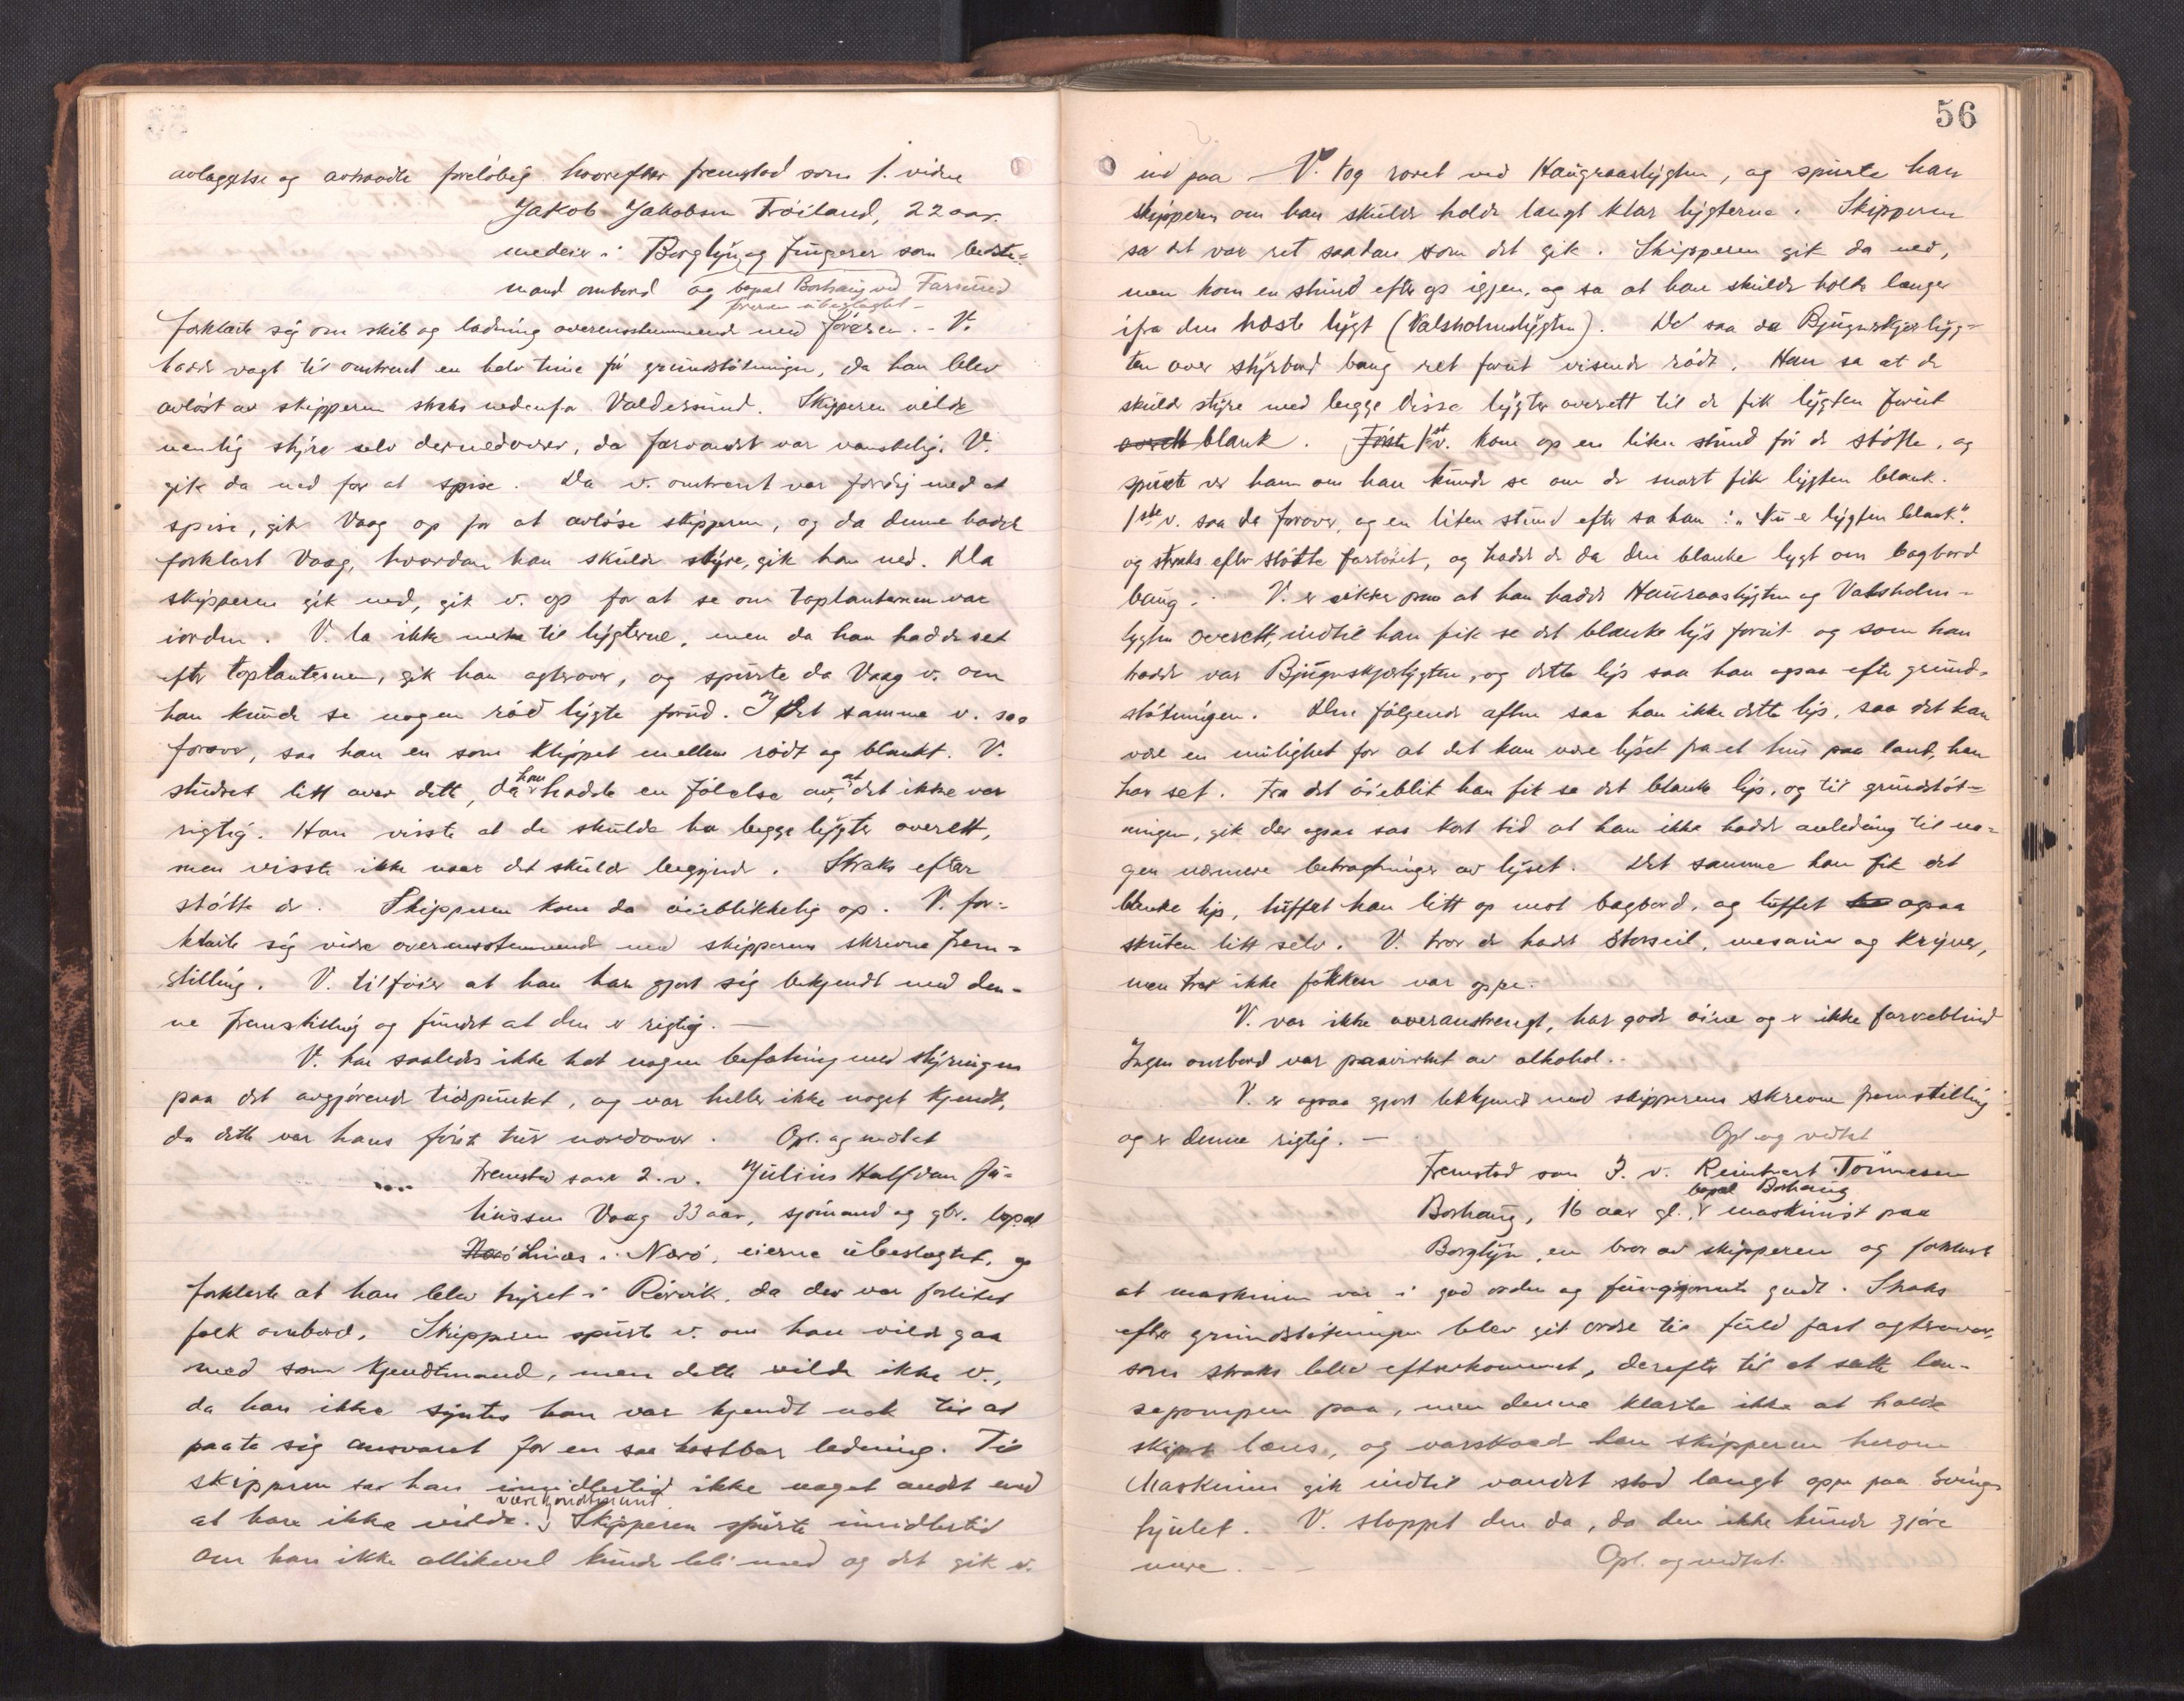 avlæggelse og avhørdte foreløbig hvorefter fremstod som 1. vidne
Jakob Jakobsen Tröiland, 22 aar.
medeier i Borglyn og fungerer som bedste-
mand ombord og bopæl Borhaug ved Farsund
føreren ubeslægtet -
forklarte sig om skib og ladning overensstemmende med føreren. - V.
hadde vagt til omtrent en halv time før grundstötningen, da han blev
avlöst av skipperen straks nedenfor Valdersund. Skipperen vilde
nemlig styre selv dernedover, da farvandet var vanskelig. V.
gik da ned for at spise. Da v. omtrent var færdig med at
spise, gik Vaag op for at avlöse skipperen, og da denne hadde
forklart Vaag, hvordan han skulde styre, gik han ned. Da
skipperen gik ned, gik v. op for at se om toplanternen var
iorden. V. la ikke merke til lygterne, men da han hadde set
efter toplanternen, gik han agterover, og spurte da Vaag v. om
han kunde se nogen röd lygte forud. I det samme v. saa
forover, saa han en som klippet mellem rödt og blankt. V.
studset litt over dette, da han hadde en fölelse av, at det ikke var
rigtig. Han visste at de skulde ha begge lygter overett,
men visste ikke naar det skulde begynde. Straks efter
stötte de. Skipperen kom da öieblikkelig op. V. for-
klarte sig videre overensstemmende med skipperens skrevne frem-
stilling. V. tilföier at han har gjort sig bekjendt med den-
ne fremstilling og fundet at den er rigtig. -
V. har saaledes ikke hat nogen befatning med styringen
paa det avgjörende tidspunkt, og var heller ikke noget kjendt,
da dette var hans förste tur nordover. Opl. og vedtat
Fremstod som 2. v. Julius Halfdan Ju-
liussen Vaag 33 aar, sjömand og gbr. bopæl
i Nærö, eierne ubeslægtet, og
forklarte at han blev hyret i Rörvik, da der var forlitet
folk ombord. Skipperen spurte v. om han vilde gaa
med som kjendtmand, men dette vilde ikke v.,
da han ikke syntes han var kjendt nok til at
paata sig ansvaret for en saa kostbar ladning. Til
skipperen sa han imidlertid ikke noget andet end
at han ikke vilde være kjendtmand. Skipperen spurte imidlertid
om han ikke allikevel kunde bli med og det gik v.
56
ind paa V. tog roret ved Haugraaslygten, og spurte han
skipperen om han skulde holde langt klar lygterne. Skipperen
sa det var ret saadan som det gik. Skipperen gik da ned,
men kom en stund efter op igjen, og sa at han skulde holde længer
ifra den næste lygt (Valsholmslygten). De saa da Bjugnskjærlyg-
ten over styrbord baug ret forut visende rödt. Han sa at de
skulde styre med begge disse lygter overett til de fik lygten forut
blank. 1ste v. kom op en liten stund för de stötte, og
spurte v. ham om han kunde se om de snart fik lygten blank.
1ste v. saa da forover, og en liten stund efter sa han: "Nu er lygten blank".
og straks efter stötte fartöiet, og hadde de da den blanke lygt om bagbord
baug. V. er sikker paa at han hadde Hauraaslygten og Valsholms-
lygten overett, indtil han fik se det blanke lys forut og som han
trodde var Bjugnskjærlygten, og dette lys saa han ogsaa efter grund-
stötningen. Den fölgende aften saa han ikke dette lys, saa det kan
være en mulighet for at det kan være lyset fra et hus paa land, han
har set. Fra det öieblik han fik se det blanke lys, og til grundstöt-
ningen, gik der ogsaa saa kort tid at han ikke hadde anledning til no-
gen nærmere betragtninger av lyset. Det samme han fik det
blanke lys, luffet han litt op mot bagbord, og luffet ogsaa
skuten litt selv. V. tror de hadde storseil, mesanen og kryver,
men tror ikke fokken var oppe.
V. var ikke overanstrengt, har gode öine og er ikke farveblind
Ingen ombord var paavirket av alkohol.
V. er ogsaa gjort bekjendt med skipperens skrevne fremstilling
og er denne rigtig. - Opl. og vedtat
Fremstod som 3. v. Reinhart Tönnesen
Borhaug, 16 aar gl., bopæl Borhaug maskinist paa
Borglyn, en bror av skipperen og forklarte
at maskinen var i god orden og fungerte godt. Straks
efter grundstötningen blev git ordre til fuld fart agterover,
som straks blev efterkommet, derefter til at sætte læn-
sepompen paa, men denne klarte ikke at holde
skipet læns, og varskoede han skipperen herom
Maskinen gik indtil vandet stod langt oppe paa sving-
hjulet. V. stoppet den da, da den ikke kunde gjöre
mere. - Opl. og vedtat.